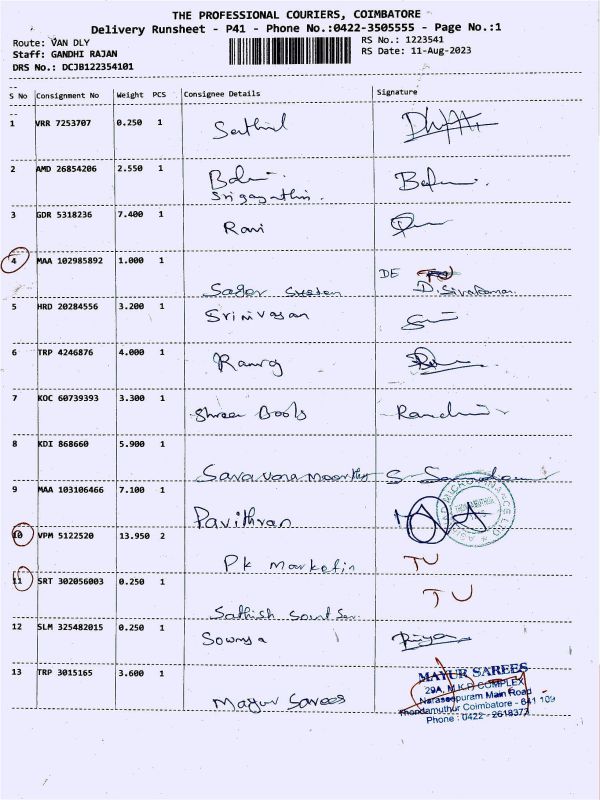 THE PROFESSIONAL COURIERS, COIMBATORE
Delivery Runsheet - P41 - Phone No.:0422-3505555 - Page No.:1
Route: VAN DLY
RS No.: 1223541
Staff: GANDHI RAJAN
RS Date: 11-Aug-2023
DRS No.: DCJB122354101
S No Consignment No Weight PCS Consignee Details Signature
1 VRR 7253707 0.250 1
2 AMD 26854206 2.550 1
3 GDR 5318236 7.400 1 Ravi
4 MAA 102985892 1.000 1 DE
D. Sivakumar
5 HRD 20284556 3.200 1 Srinivasan
6 TRP 4246876 4.000 1
7 KOC 60739393 3.300 1 Shree Books
8 KDI 868660 5.900 1
Saravana moorthy
9 MAA 103106466 7.100 1 Pavithran
10 VPM 5122520 13.950 2 TU
PK Marketin
11 SRT 302056003 0.250 1 TU
Sathish
12 SLM 325482015 0.250 1 Sowmya Priya
13 TRP 3015165 3.600 1 Mayur Sarees
MAYUR SAREES
29A, M.K.P. COMPLEX
Naraseepuram Main Road
Thondamuthur Coimbatore - 641 109
Phone : 0422 - 2618373